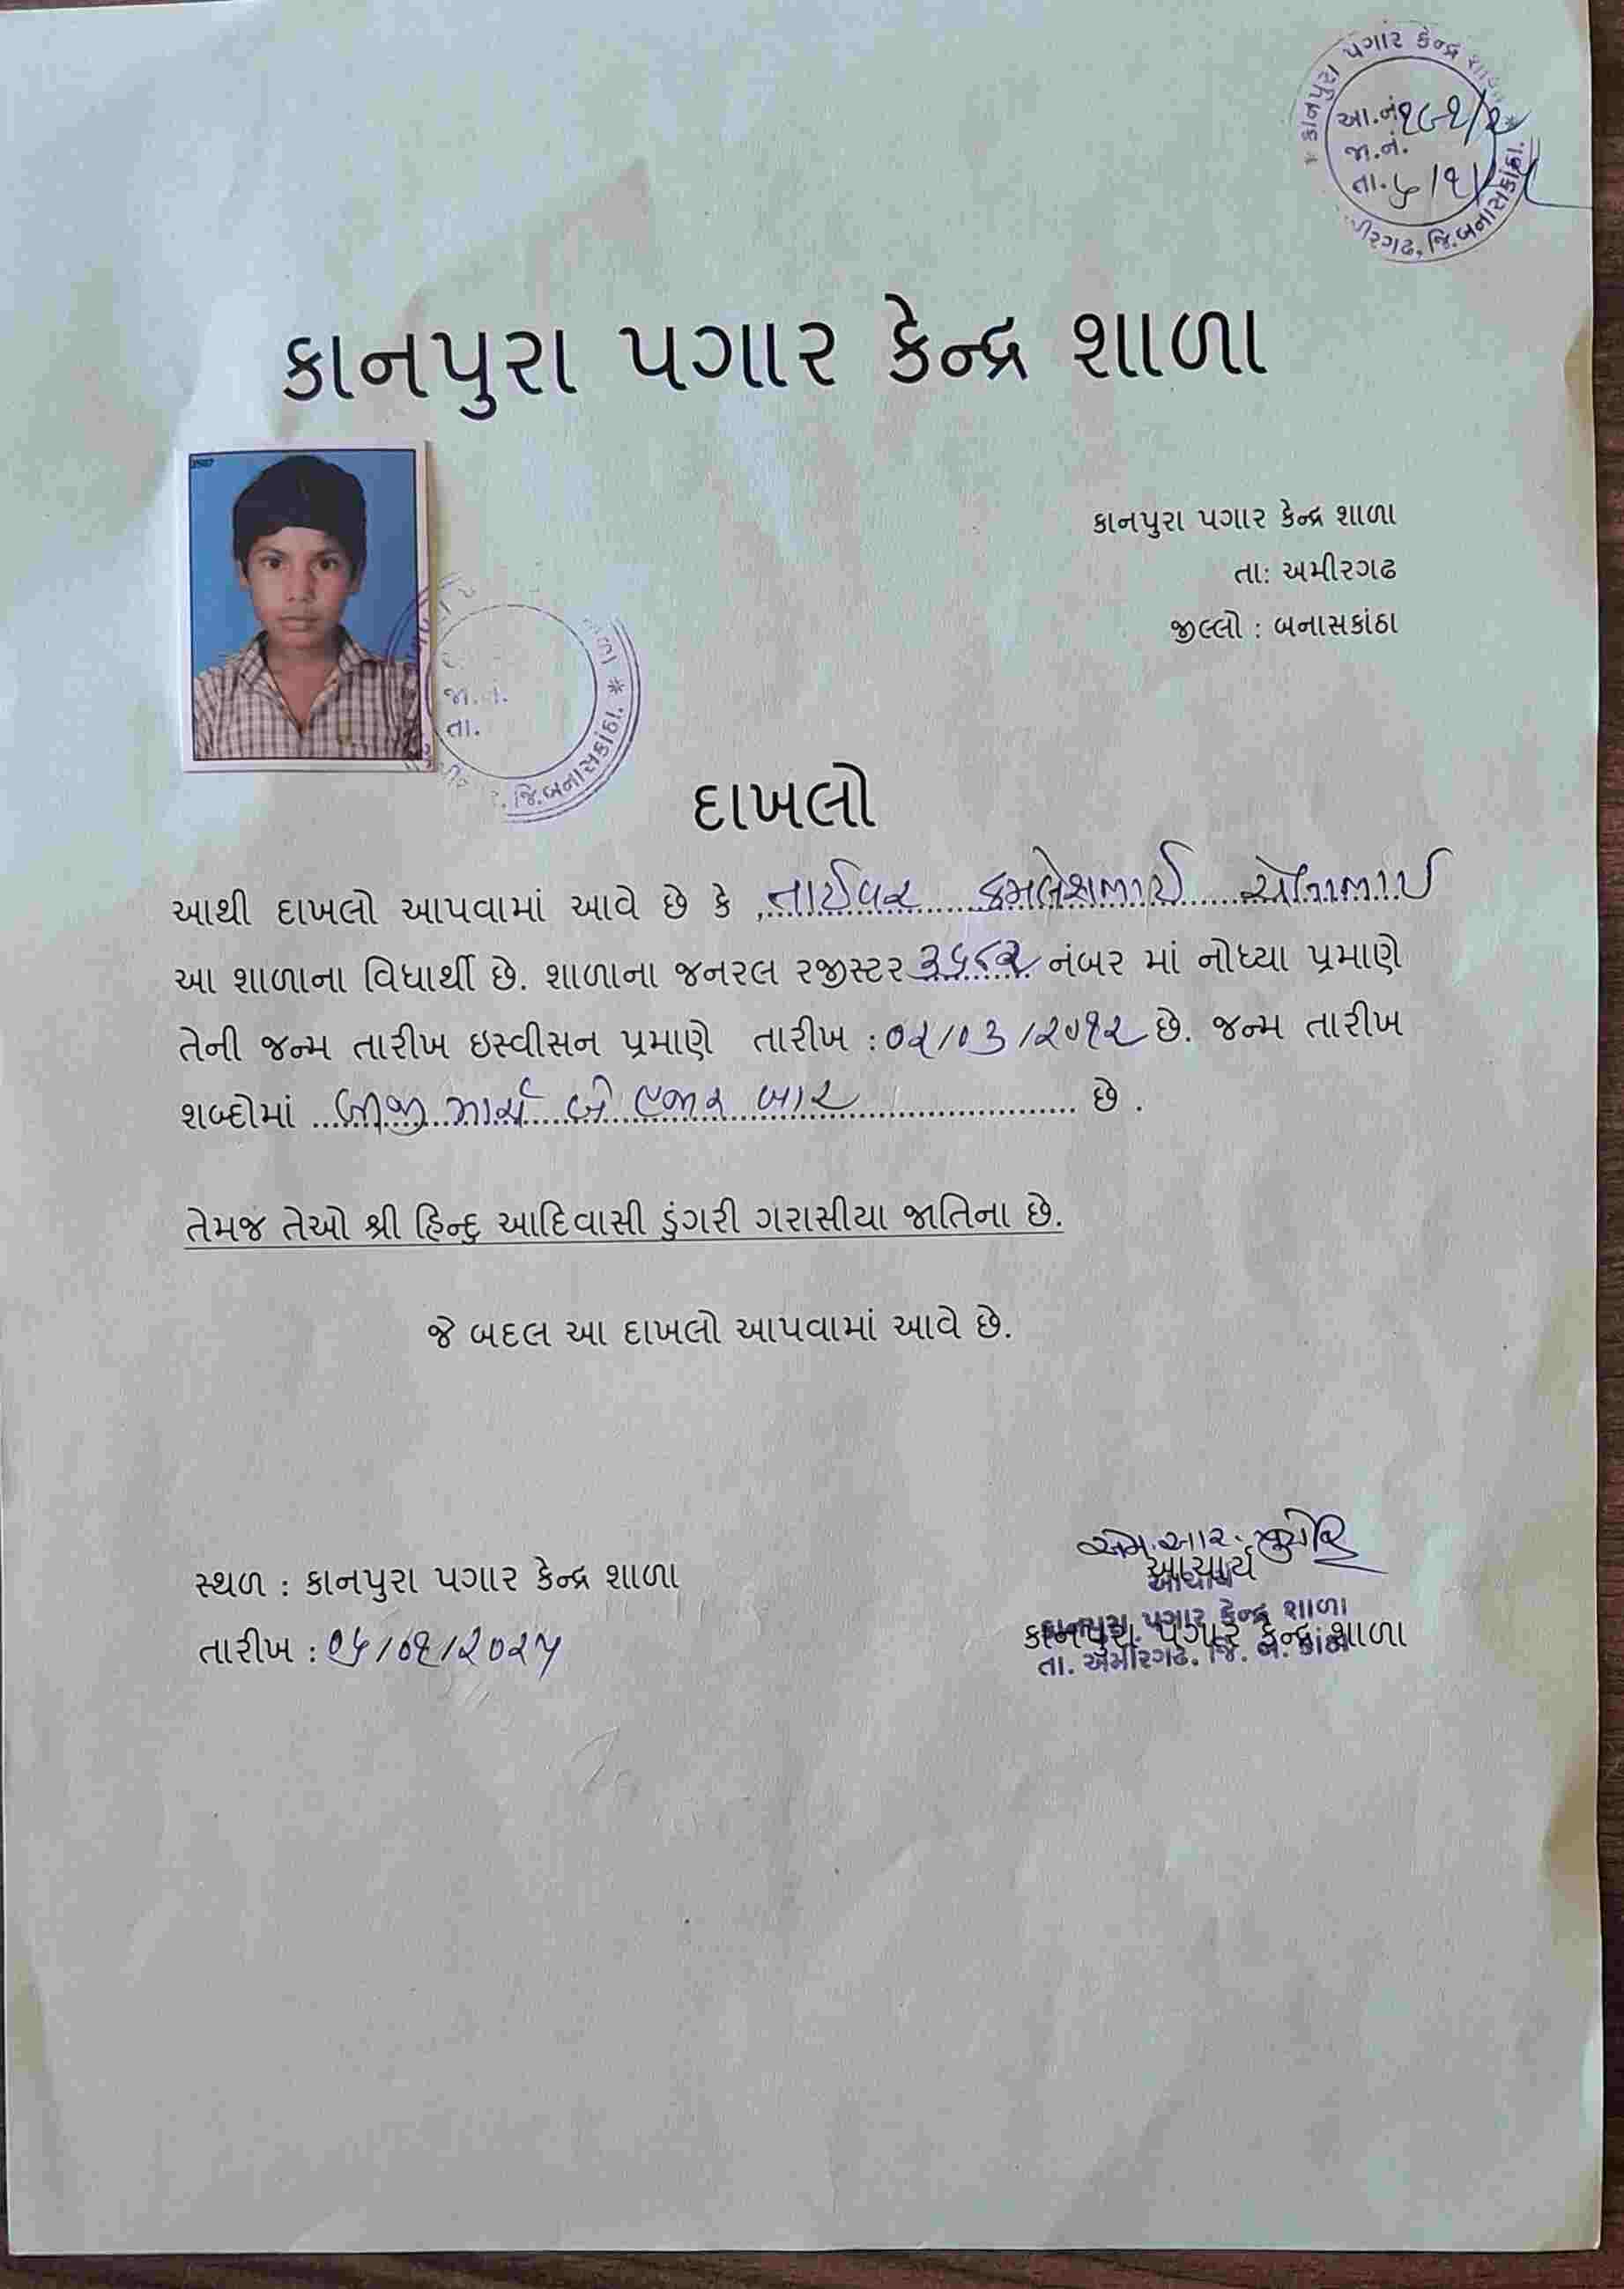 કાનપુરા પગાર કેન્દ્ર શાળા
આ.નં.
જા.નં.
તા.
જિ.બનાસકાંઠા.
કાનપુરા પગાર કેન્દ્ર શાળા
કાનપુરા પગાર કેન્દ્ર શાળા
તા: અમીરગઢ
જીલ્લો : બનાસકાંઠા
જા.નં.
તા.
જિ.બનાસકાંઠા.
દાખલો
આથી દાખલો આપવામાં આવે છે કે , તાઈવર કમલેશભાઈ
આ શાળાના વિધાર્થી છે. શાળાના જનરલ રજીસ્ટર નંબર માં નોધ્યા પ્રમાણે
તેની જન્મ તારીખ ઇસ્વીસન પ્રમાણે તારીખ : ૦૨/૦૩/૨૦૧૨ છે. જન્મ તારીખ
શબ્દોમાં બીજી માર્ચ બે હજાર બાર છે .
તેમજ તેઓ શ્રી હિન્દુ આદિવાસી ડુંગરી ગરાસીયા જાતિના છે.
જે બદલ આ દાખલો આપવામાં આવે છે.
સ્થળ : કાનપુરા પગાર કેન્દ્ર શાળા
તારીખ : ૦૬/૦૧/૨૦૨૫
એમ.આર.
આચાર્ય
આચાર્ય
કાનપુરા પગાર કેન્દ્ર શાળા
કાનપુરા પગાર કેન્દ્ર શાળા
તા. અમીરગઢ. જિ. બ. કાંઠા